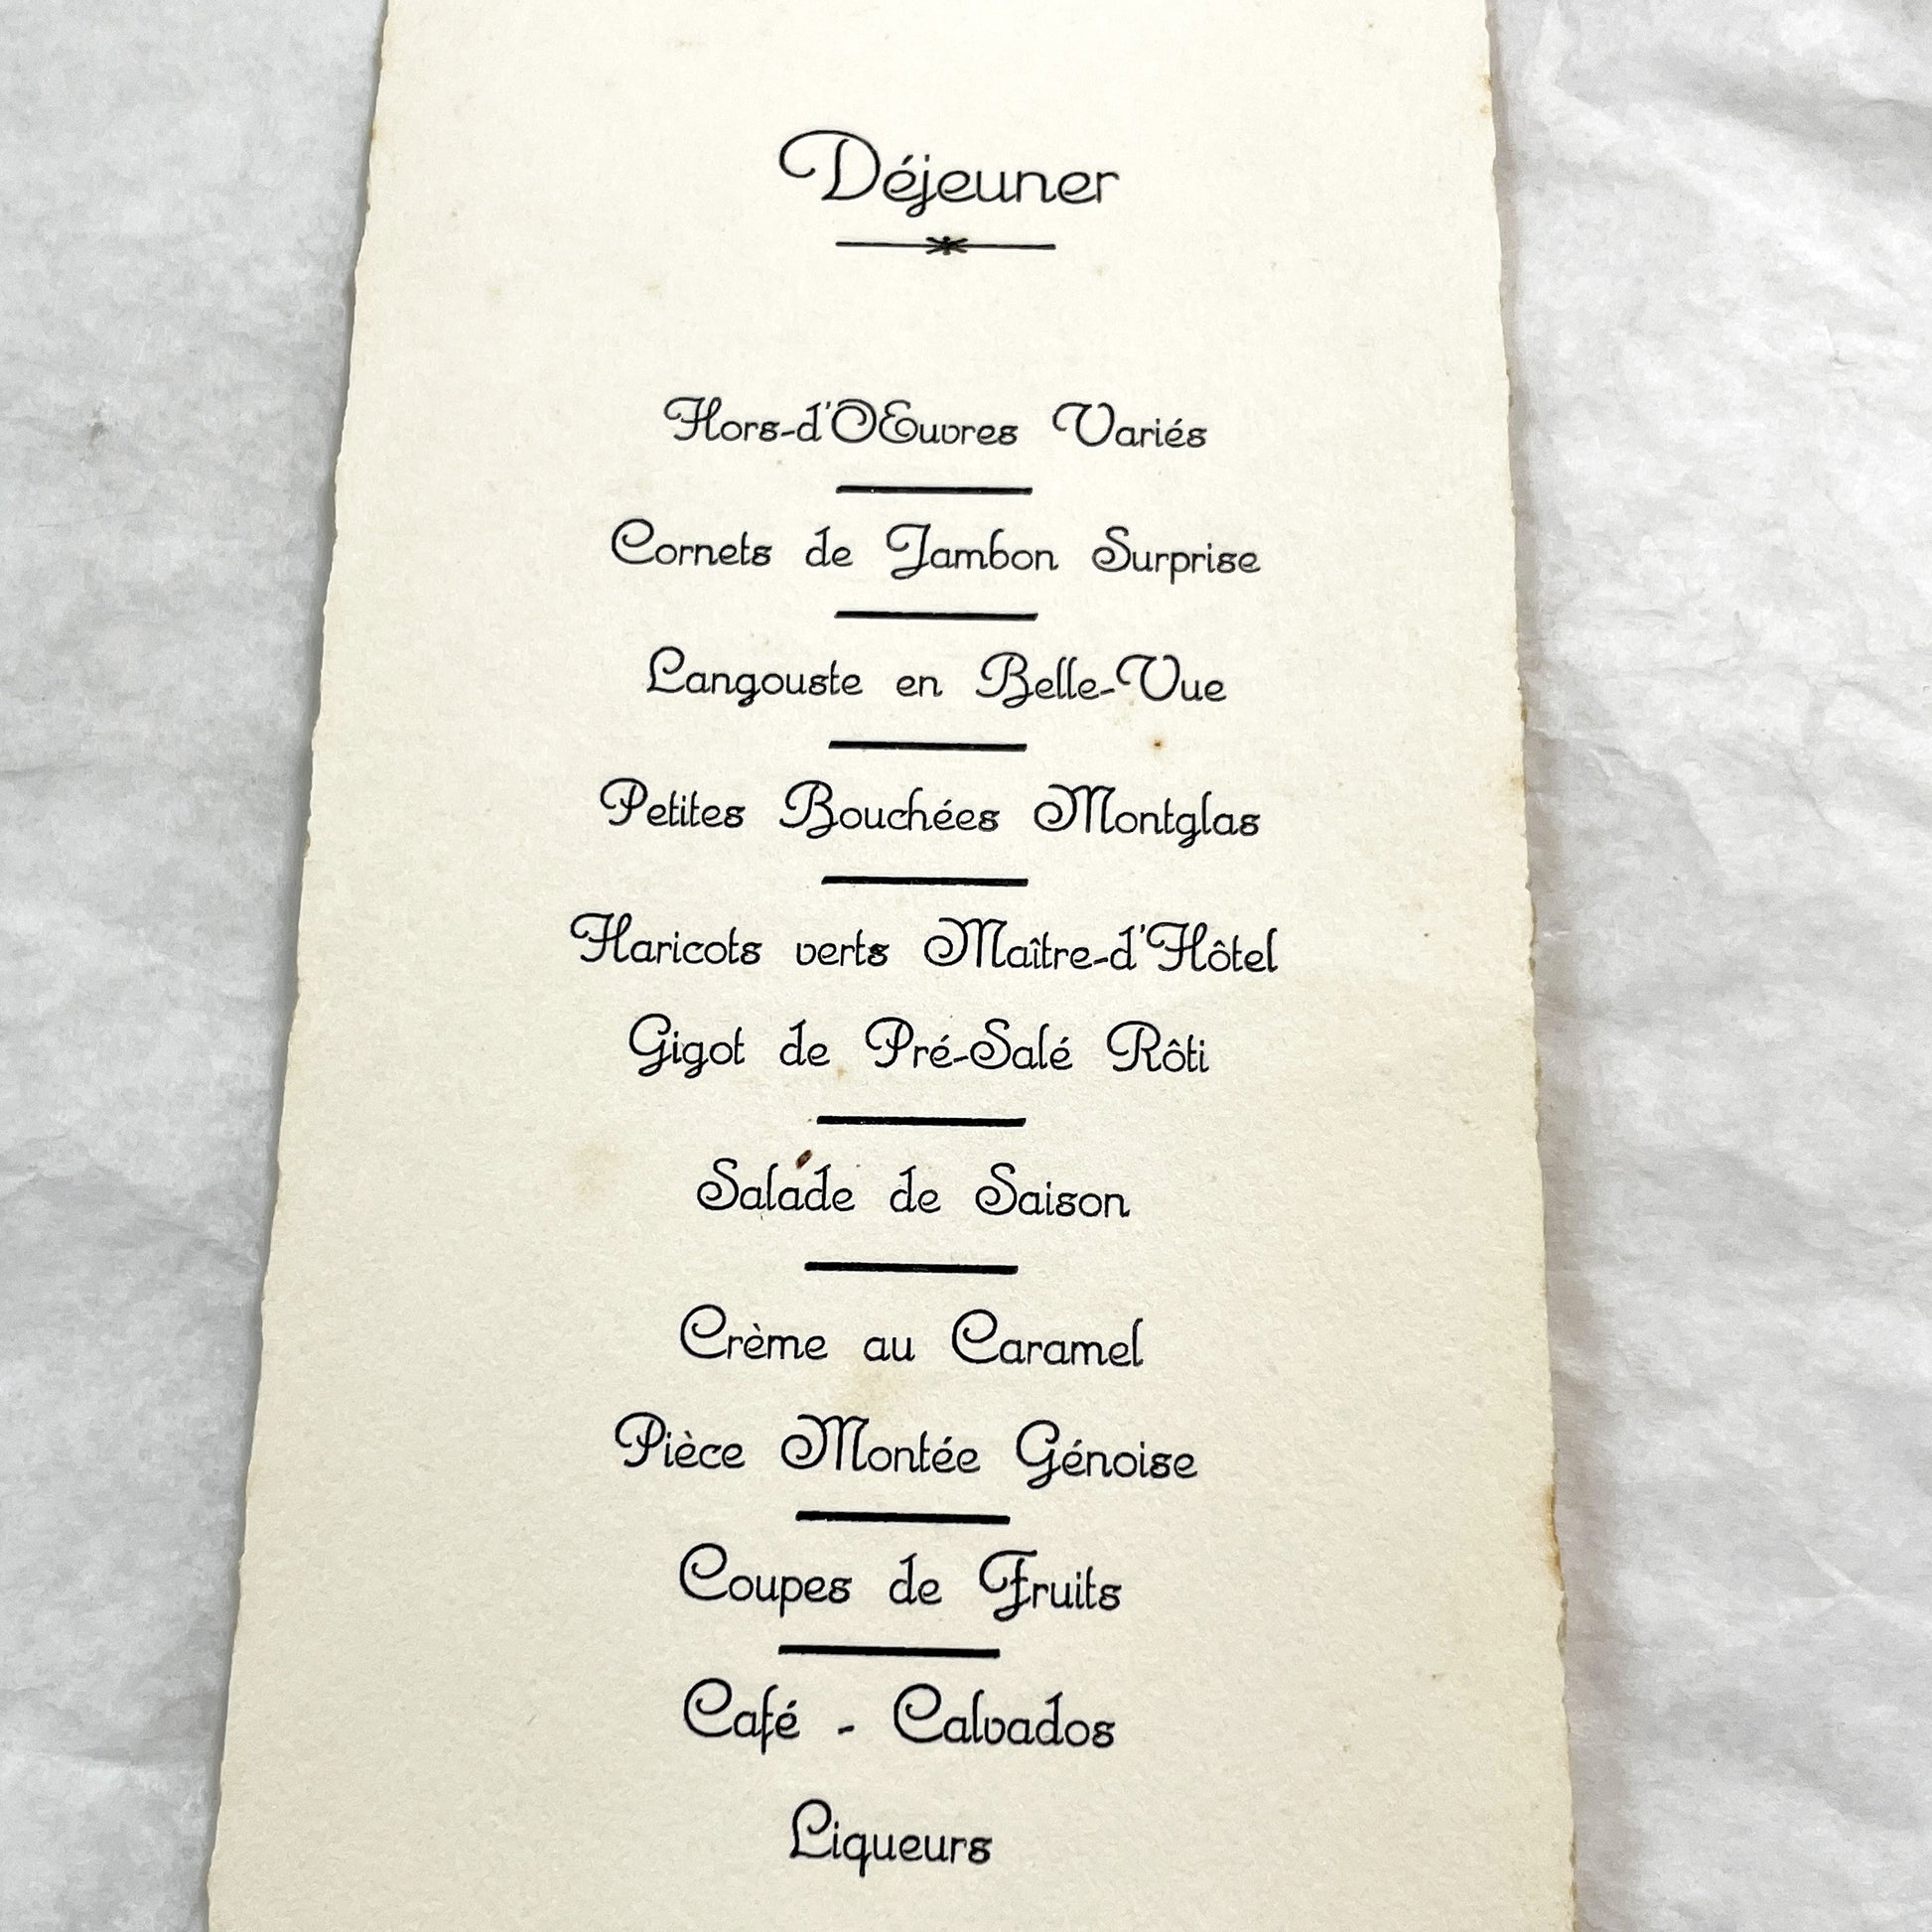 Déjeuner
Hors-d'OEuvres Variés
Cornets de Jambon Surprise
Langouste en Belle-Vue
Petites Bouchées Montglas
Haricots verts Maître-d'Hôtel
Gigot de Pré-Salé Rôti
Salade de Saison
Crème au Caramel
Pièce Montée Génoise
Coupes de Fruits
Café - Calvados
Liqueurs